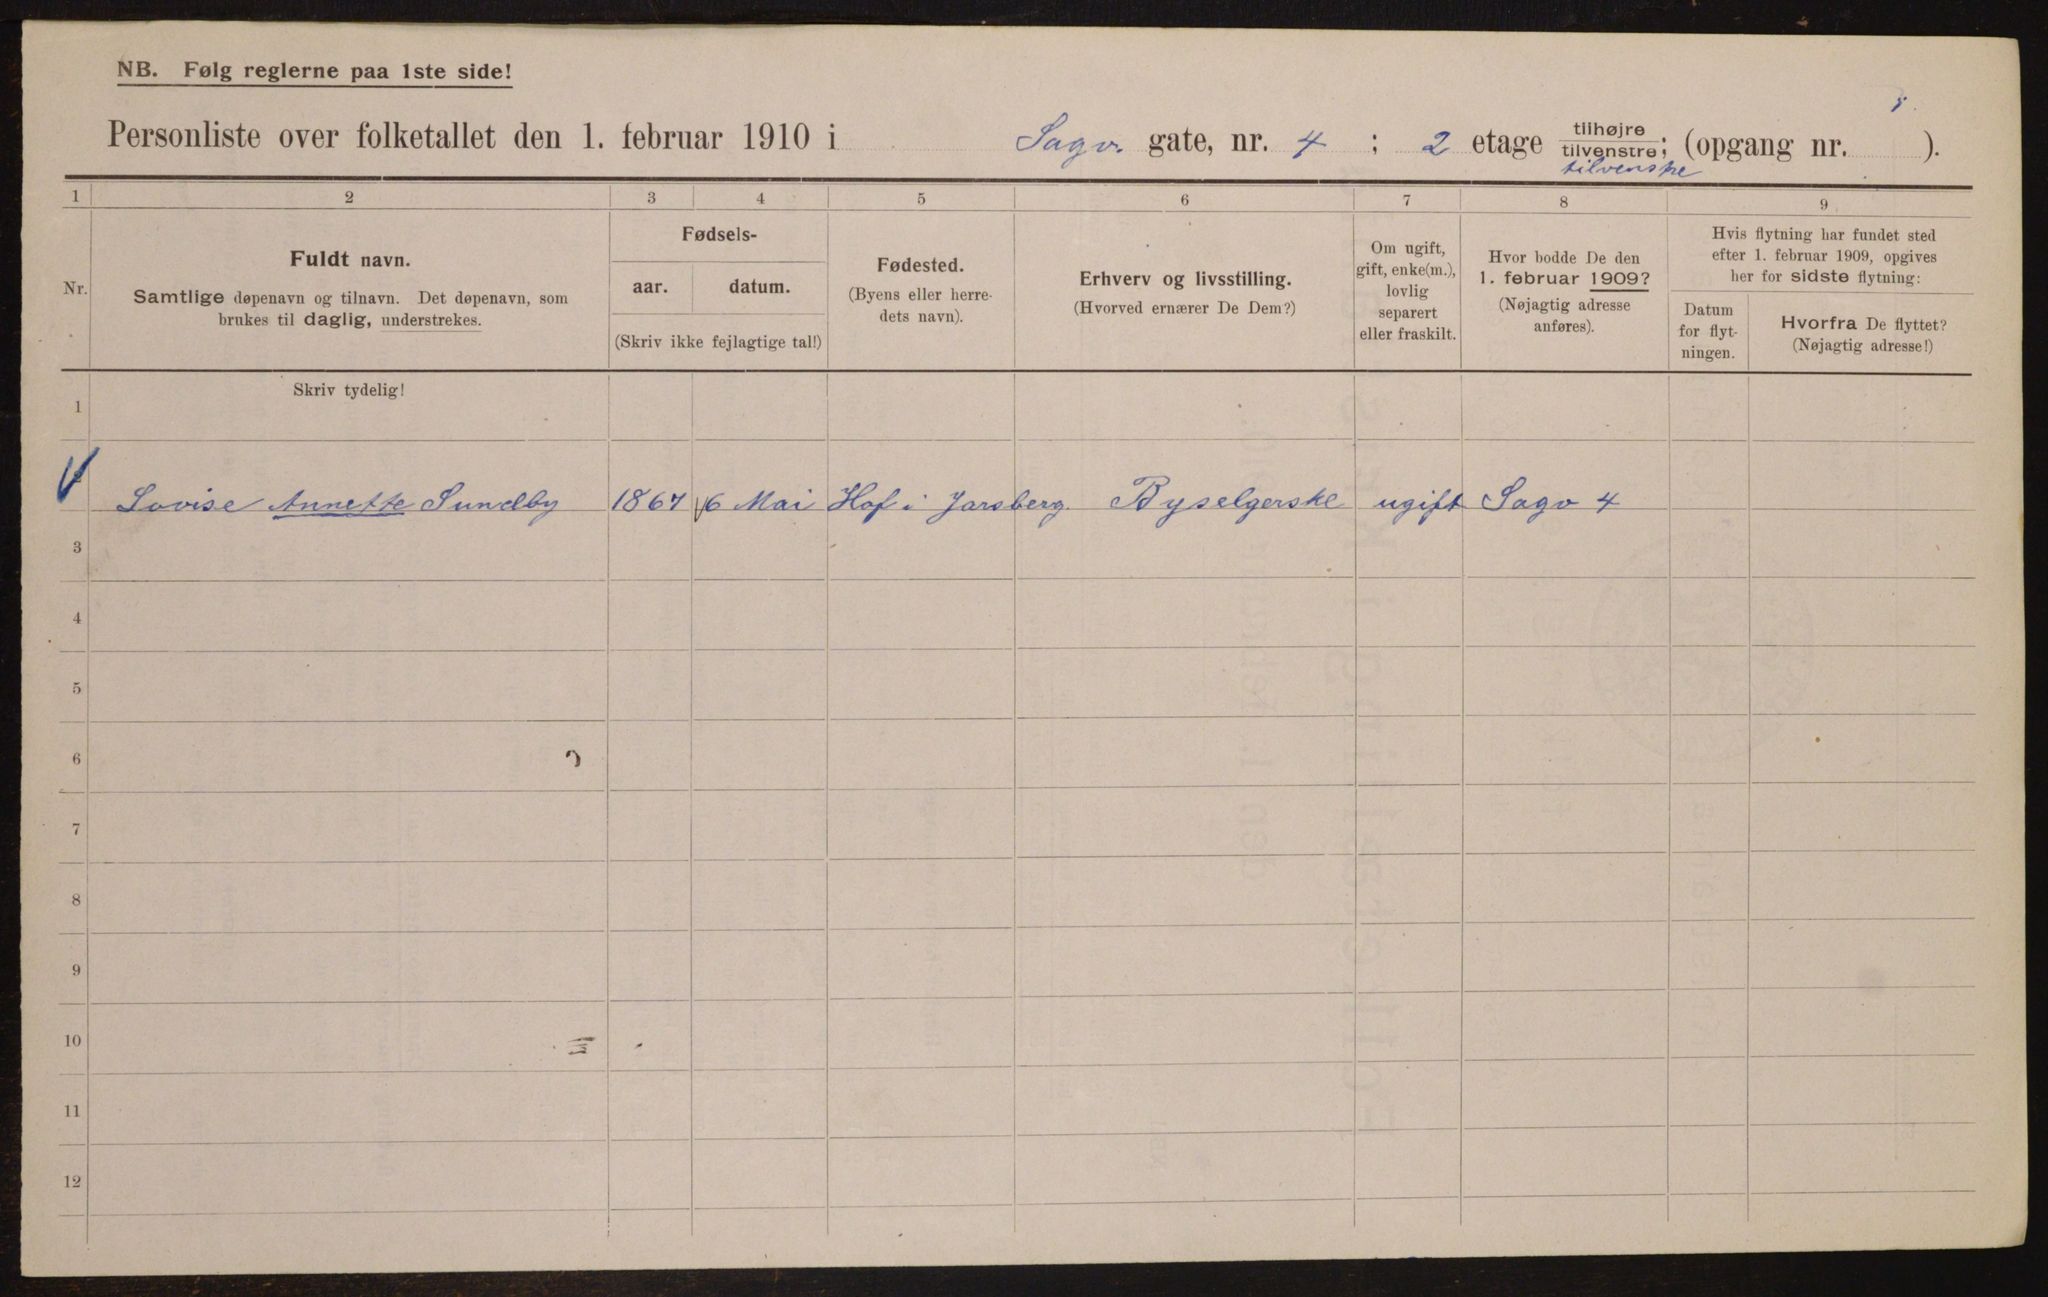 NB. Følg reglerne paa 1ste side!
Personliste over folketallet den 1. februar 1910 i Sagv. gate, nr. 4 ; 2 etage tilhøjre tilvenstre; (opgang nr. ).
tilvenstre
1 2 3 4 5 6 7 8 9
Nr.
Fuldt navn.
Samtlige døpenavn og tilnavn. Det døpenavn, som
brukes til daglig, understrekes.
Fødsels-
aar. datum.
(Skriv ikke fejlagtige tal!)
Fødested.
(Byens eller herre-
dets navn).
Erhverv og livsstilling.
(Hvorved ernærer De Dem?)
Om ugift,
gift, enke(m.),
lovlig
separert
eller fraskilt.
Hvor bodde De den
1. februar 1909?
(Nøjagtig adresse
anføres).
Hvis flytning har fundet sted
efter 1. februar 1909, opgives
her for sidste flytning:
Datum
for flyt-
ningen.
Hvorfra De flyttet?
(Nøjagtig adresse!)
Skriv tydelig!
1
Lovise Annette Sundby 1867 6 Mai Hof i Jarsberg. Byselgerske ugift Sagv 4
3
4
5
6
7
8
9
10
11
12